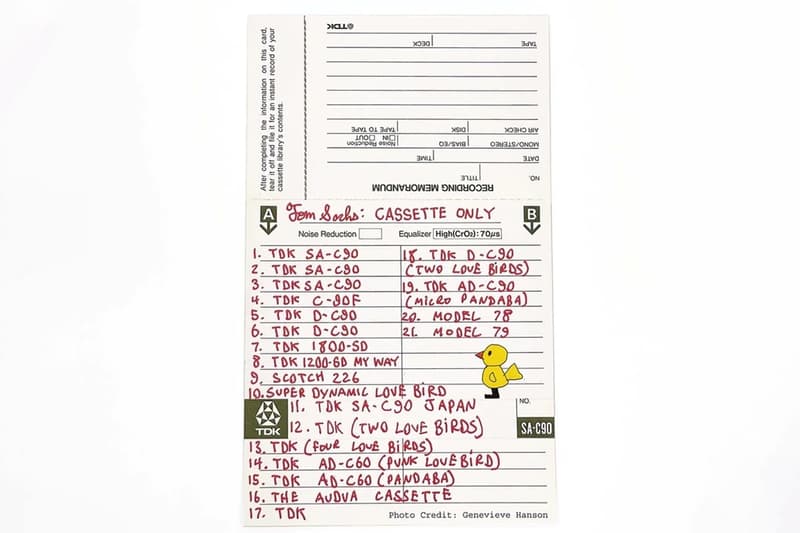 After completing the information on this card,
tear it off and file it for an instant record of your
cassette library's contents.
RECORDING MEMORANDUM
NO.
TITLE
DATE
TIME
MONO/STEREO
BIAS/EQ
Noise Reduction
□IN □OUT
AIR CHECK
DISK
TAPE TO TAPE
TAPE
DECK
TDK
A
Tom Sachs: CASSETTE ONLY
B
Noise Reduction
Equalizer High(CrO2):70μs
1. TDK SA-C90
2. TDK SA-C90
3. TDK SA-C90
4. TDK C-90F
5. TDK D-C90
6. TDK D-C90
7. TDK 1800-SD
8. TDK 1200-GD MY WAY
9. SCOTCH 226
10. SUPER DYNAMIC LOVE BIRD
11. TDK SA-C90 JAPAN
12. TDK (TWO LOVE BIRDS)
13. TDK (FOUR LOVE BIRDS)
14. TDK AD-C60 (PUNK LOVEBIRD)
15. TDK AD-C60 (PANDABA)
16. THE AUDVA CASSETTE
17. TDK
18. TDK D-C90
(TWO LOVE BIRDS)
19. TDK AD-C90
(MICRO PANDABA)
20. MODEL 78
21. MODEL 79
TDK
NO.
SA-C90
Photo Credit: Genevieve Hanson